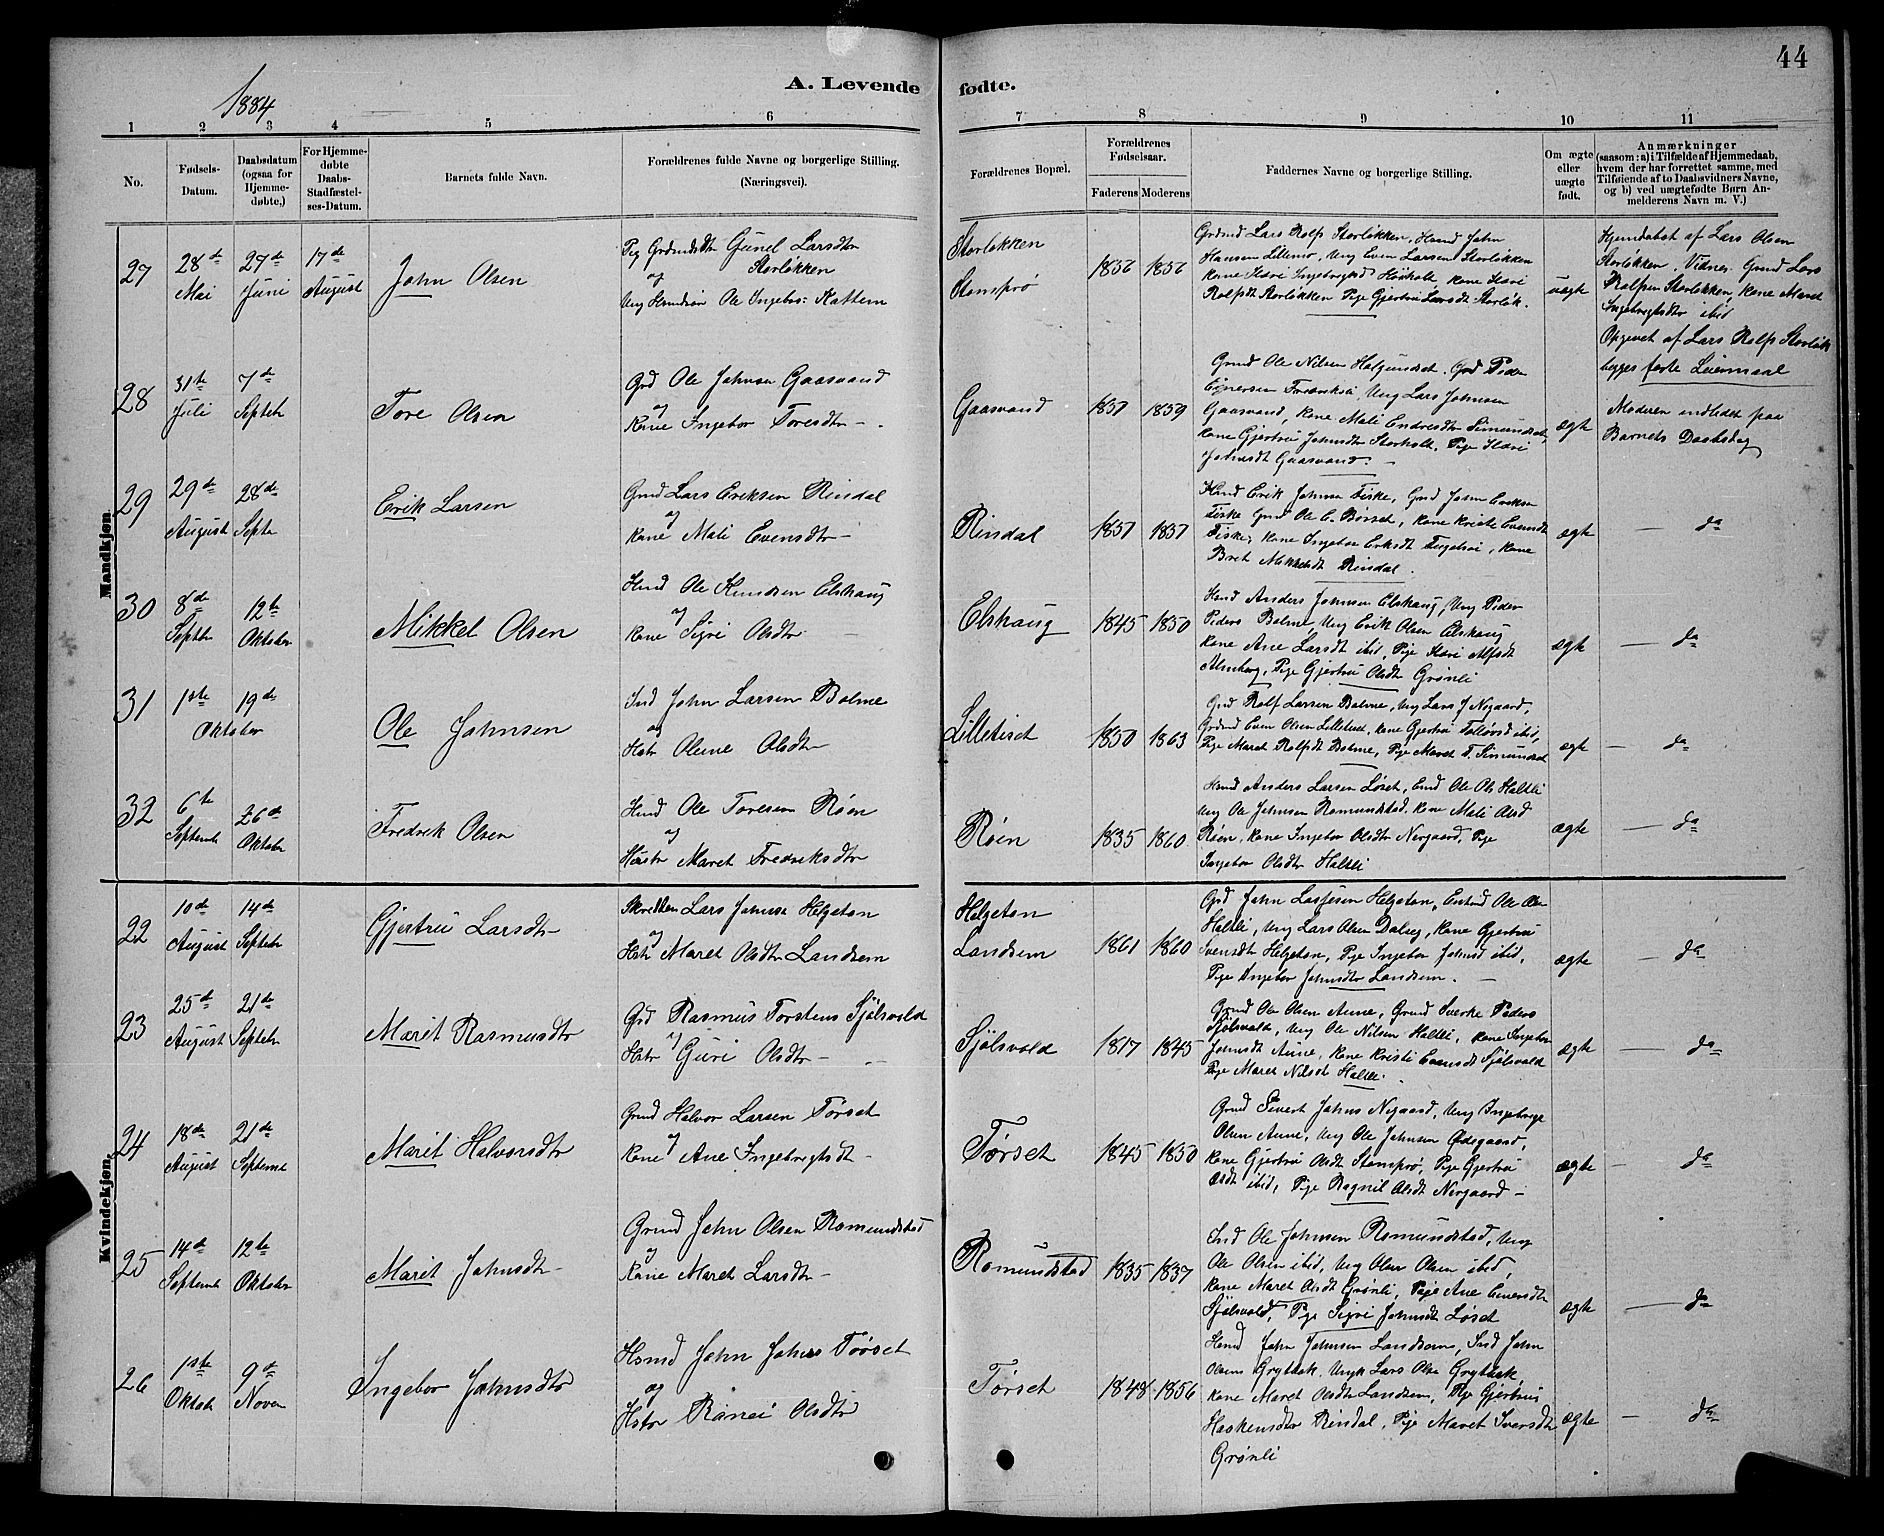 44
1884
A. Levende fødte.
1 2 3 4 5 6 7 8 9 10 11
No.
Fødsels-Datum.
Daabsdatum (ogsaa for Hjemme-døbte,)
For Hjemme-døbte Daabs-Stadfæstel-ses-Datum.
Barnets fulde Navn.
Forældrenes fulde Navne og borgerlige Stilling. (Næringsvei.)
Forældrenes Bopæl.
Forældrenes Fødselsaar.
Faderens Moderens
Faddernes Navne og borgerlige Stilling.
Om ægte eller uægte født.
Anmærkninger
(saasom: a) i Tilfælde af Hjemmedaab, hvem der har forrettet samme, med Tilføiende af to Daabsvidners Navne, og b) ved uægtefødte Børn Anmelderens Navn m. V.)
Mandkjøn
27
28de Mai
27de Juni
17de August
John Olsen
Pig Grdmdsdtr Gunel Larsdtr Storløkken
og
Ung Ole Ingebr. Kattem
Storløkken
Stomprø
1856 1856
Grdmd Lars Rolfs Storløkken, Hsmd John
Hansen Lillemo, Ung Even Larsen Storløkken
Rolfsdt Storløkken Pige Gjertru Larsdt Storløk.
uægte
Hjemdøbt af Lars Olsen
Storløkken. Vidner Gmd Lars
Rolfsen Storløkken, Kone Maret
Ingebregtsdtr ibid
Opgivet af Lars Rolfs Storløk
begges første Leiermaal
28
31te Juli
7de Septebr
Tore Olsen
Grd Ole Johnsen Gaasvand
og
Kone Ingebor Toresdtr -
Gaasvand
1857 1859
Gmd Ole Nilsen Helgundset. Grd Peder
Ung Lars Johnsen
Gaasvand, Kone Mali Endresdtr Simundset,
Kone Gjertru Johnsdtr Storholt, Pige
Johnsdt Gaasvand. -
ægte
Moderen indledet paa
Barnets Daabsdag
29
29de August
28de Septe
Erik Larsen
Gmd Lars Eriksen Rindal
og
Kone Mali Evensdtr -
Rindal
1857 1857
Hsmd Erik Johnsen Fiske, Grd John Eriksen
Fiske Gmd Ole E. Børset, Kone Kristi Evensdt
Fiske, Kone Ingebor Eriksdt Kone
Bret Mikkelsdt Rindal.
ægte
- da
30
8de Septebr
12te Oktober
Mikkel Olsen
Hsmd Ole Knudsen Elshaug
og
Kone Sigri Olsdtr. -
Elshaug
1845 1850
Hsmd Anders Johnsen Elshaug, Ung Peder
Peders Bolme, Ung Erik Olsen Elshaug
Kone Ane Larsdt ibid, Pige
Almberg, Pige Gjertru Olsdt Grønli
ægte
- da
31
1ste Oktober
19de
Ole Johnsen
Ind John Larsen Bolme
og
Hstr Oline Olsdtr
Lilletiset
1850 1863
Grd Rolf Larsen Bolme, Ung Lars J Nogaard,
Grdmd Even Olsen Lilletiset, Kone Gjertru ibid,
Pige Maret Rolfsdt Bolme, Pige Maret T. Simundset
ægte
- da
32
6te Septemb
26de Oktober
Fredrik Olsen
Hsmd Ole Toresen Røen
og
Hustr Maret Fredriksdtr
Røen
1835 1860
Hsmd Anders Larsen Løset, Ole Ols Haltli
Ung Ole Johnsen Romundstad. Kone Mali Olsd
Røen, Kone Ingebor Olsdtr Norgaard, Pige
Ingebor Olsdtr Haltli
ægte
- da
Kvindekjøn.
22
10de August
14de Septebr
Gjertru Larsdtr
Skredder Lars Johnsen Helgeton
og
Hstr Maret Olsdtr Landsem
Helgeton
Landsem
1861 1860
Grd John Larsen Helgeton, Ole Olsen
Haltli, Ung Lars Olsen Dalseg, Kone Gjertru
Sversdt Helgeton, Pige Ingebor Johnsd ibid,
Pige Ingebor Johnsdtr Landsem. -
ægte
- da
23
25de August
21de Septebr
Maret Rasmusdtr
Grd Rasmus Torstens Sjølsvold
og
Hstr Guri Olsdtr -
Sjølsvold
1817 1845
Gmd Ole Olsen Aune, Grmd Sverke Peders
Sjølsvold, Ung Ole Nilsen Haltli, Kone Ingebor
Johnsdt Aune, Kone Kristi Evensdt Sjølsvold
Pige Maret Nilsdt Haltli.
ægte
- da
24
18de August
21de Septeme
Marit Halvorsdtr
Grmd Halvor Larsen Tørset
og
Kone Ane Ingebregtsdt -
Tørset
1845 1850
Grmd Sivert Johns Nogaard, Ung Ingebrigt
Olsen Aune, Ung Ole Johnsen Ødegaard,
Kone Gjertru Olsdt Stomprø, Pige Gjertru
Olsdt ibid, Pige Ragnil Olsdt Norgaard -
ægte
- da
25
14de Septemb
12te Oktober
Marit Johnsdt -
Grmd John Olsen Romundstad
og
Kone Maret Larsdtr -
Romundstad
1835 1837
Ind Ole Johnsen Romundstad, Ung
Ole Olsen ibid, Ung Olen Olsen ibid,
Kone Maret Olsdt Grønli, Pige Ane Evensdtr
Sjølsvold, Pige Sigri Johnsdt Løset
ægte
- da
26
1ste Oktobr
9de Novem
Ingebor Johnsdtr
Hsmd John Johns Tørset
og
Hstr Olsdtr
Tørset
1848 1856
Hsmd John Johnsen Landsem, Ind John
Olsens Grytbak, Ungk Lars Olsen Grytbak,
Kone Maret Olsdtr Landsem, Pige Gjertru
Haakensdtr Rindal, Pige Maret Sversdtr
Grønli
ægte
- da